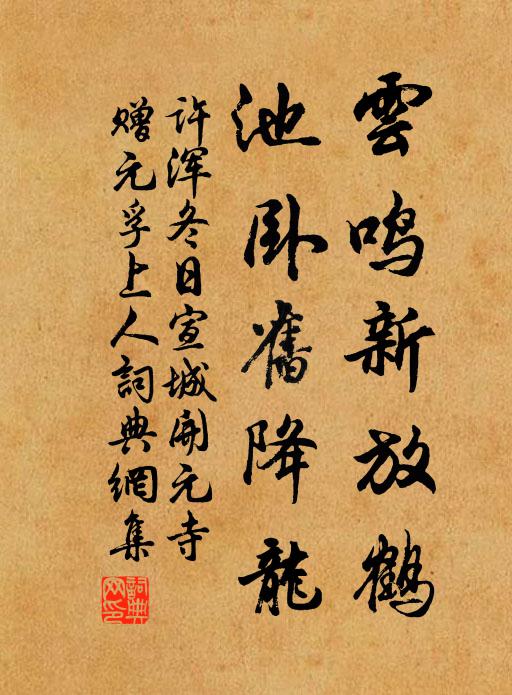 雲鸣新放鶴
池卧舊降龍
许浑冬日宣城開元寺
赠元孚上人詞典網集
詞典
网印